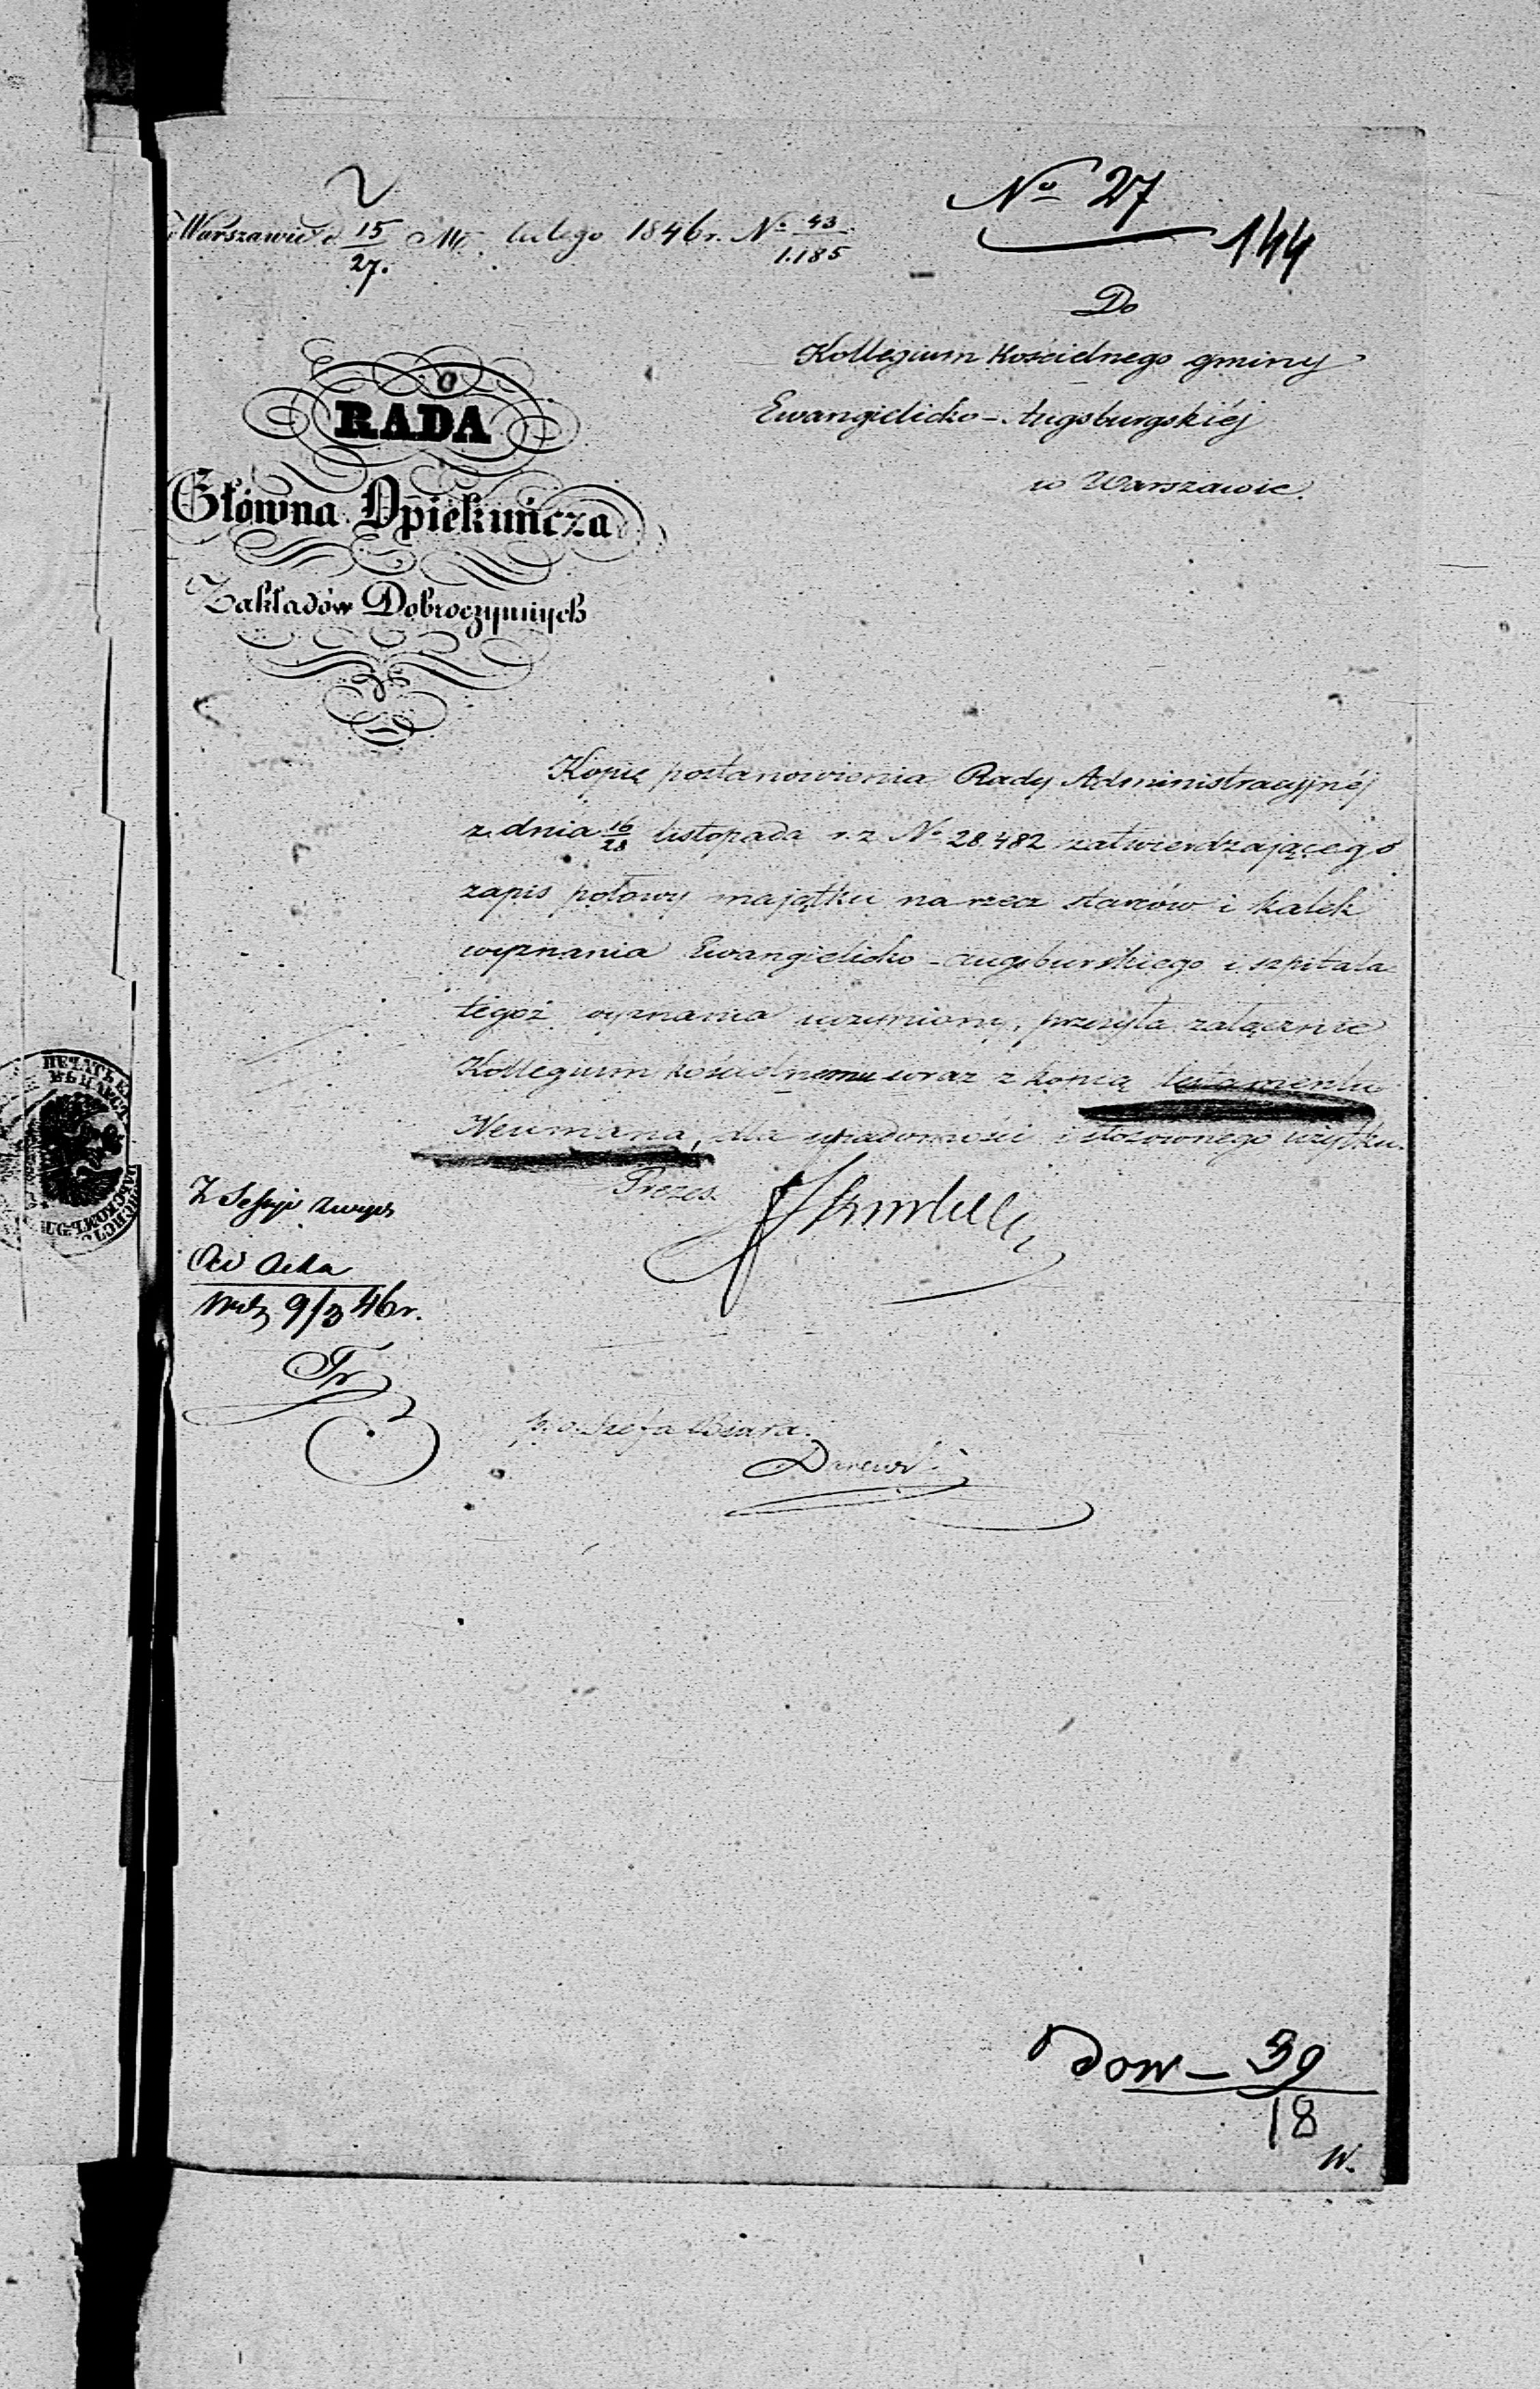 No 27
144
w Warszawie d. 15/27. Mc. lutego 1846 r. No 43/1.185
Do
Kollegium Kościelnego gminy
Ewangielicko-Augsburgskiéj
w Warszawie.
RADA
Główna Opiekuńcza
Zakładów Dobroczynnych
Kopię postanowienia Rady Administracyjnéj
z dnia 16/28 listopada r. z. No 28.482 zatwierdzającego
zapis połowy majątku na rzecz starców i kalek
wyznania Ewangielicko-augsburskiego i szpitala
tegoż wyznania uczyniony, przesyła załącznie
Kollegium kościelnemu wraz z kopią testamentu
Neumana, dla wiadomości i stosownego użytku.
Prezes.
ПЕЧАТЬ
Ad Acta
9/3 46 r.
p. o. Szefa Biura.
Dow - 39
18
W.